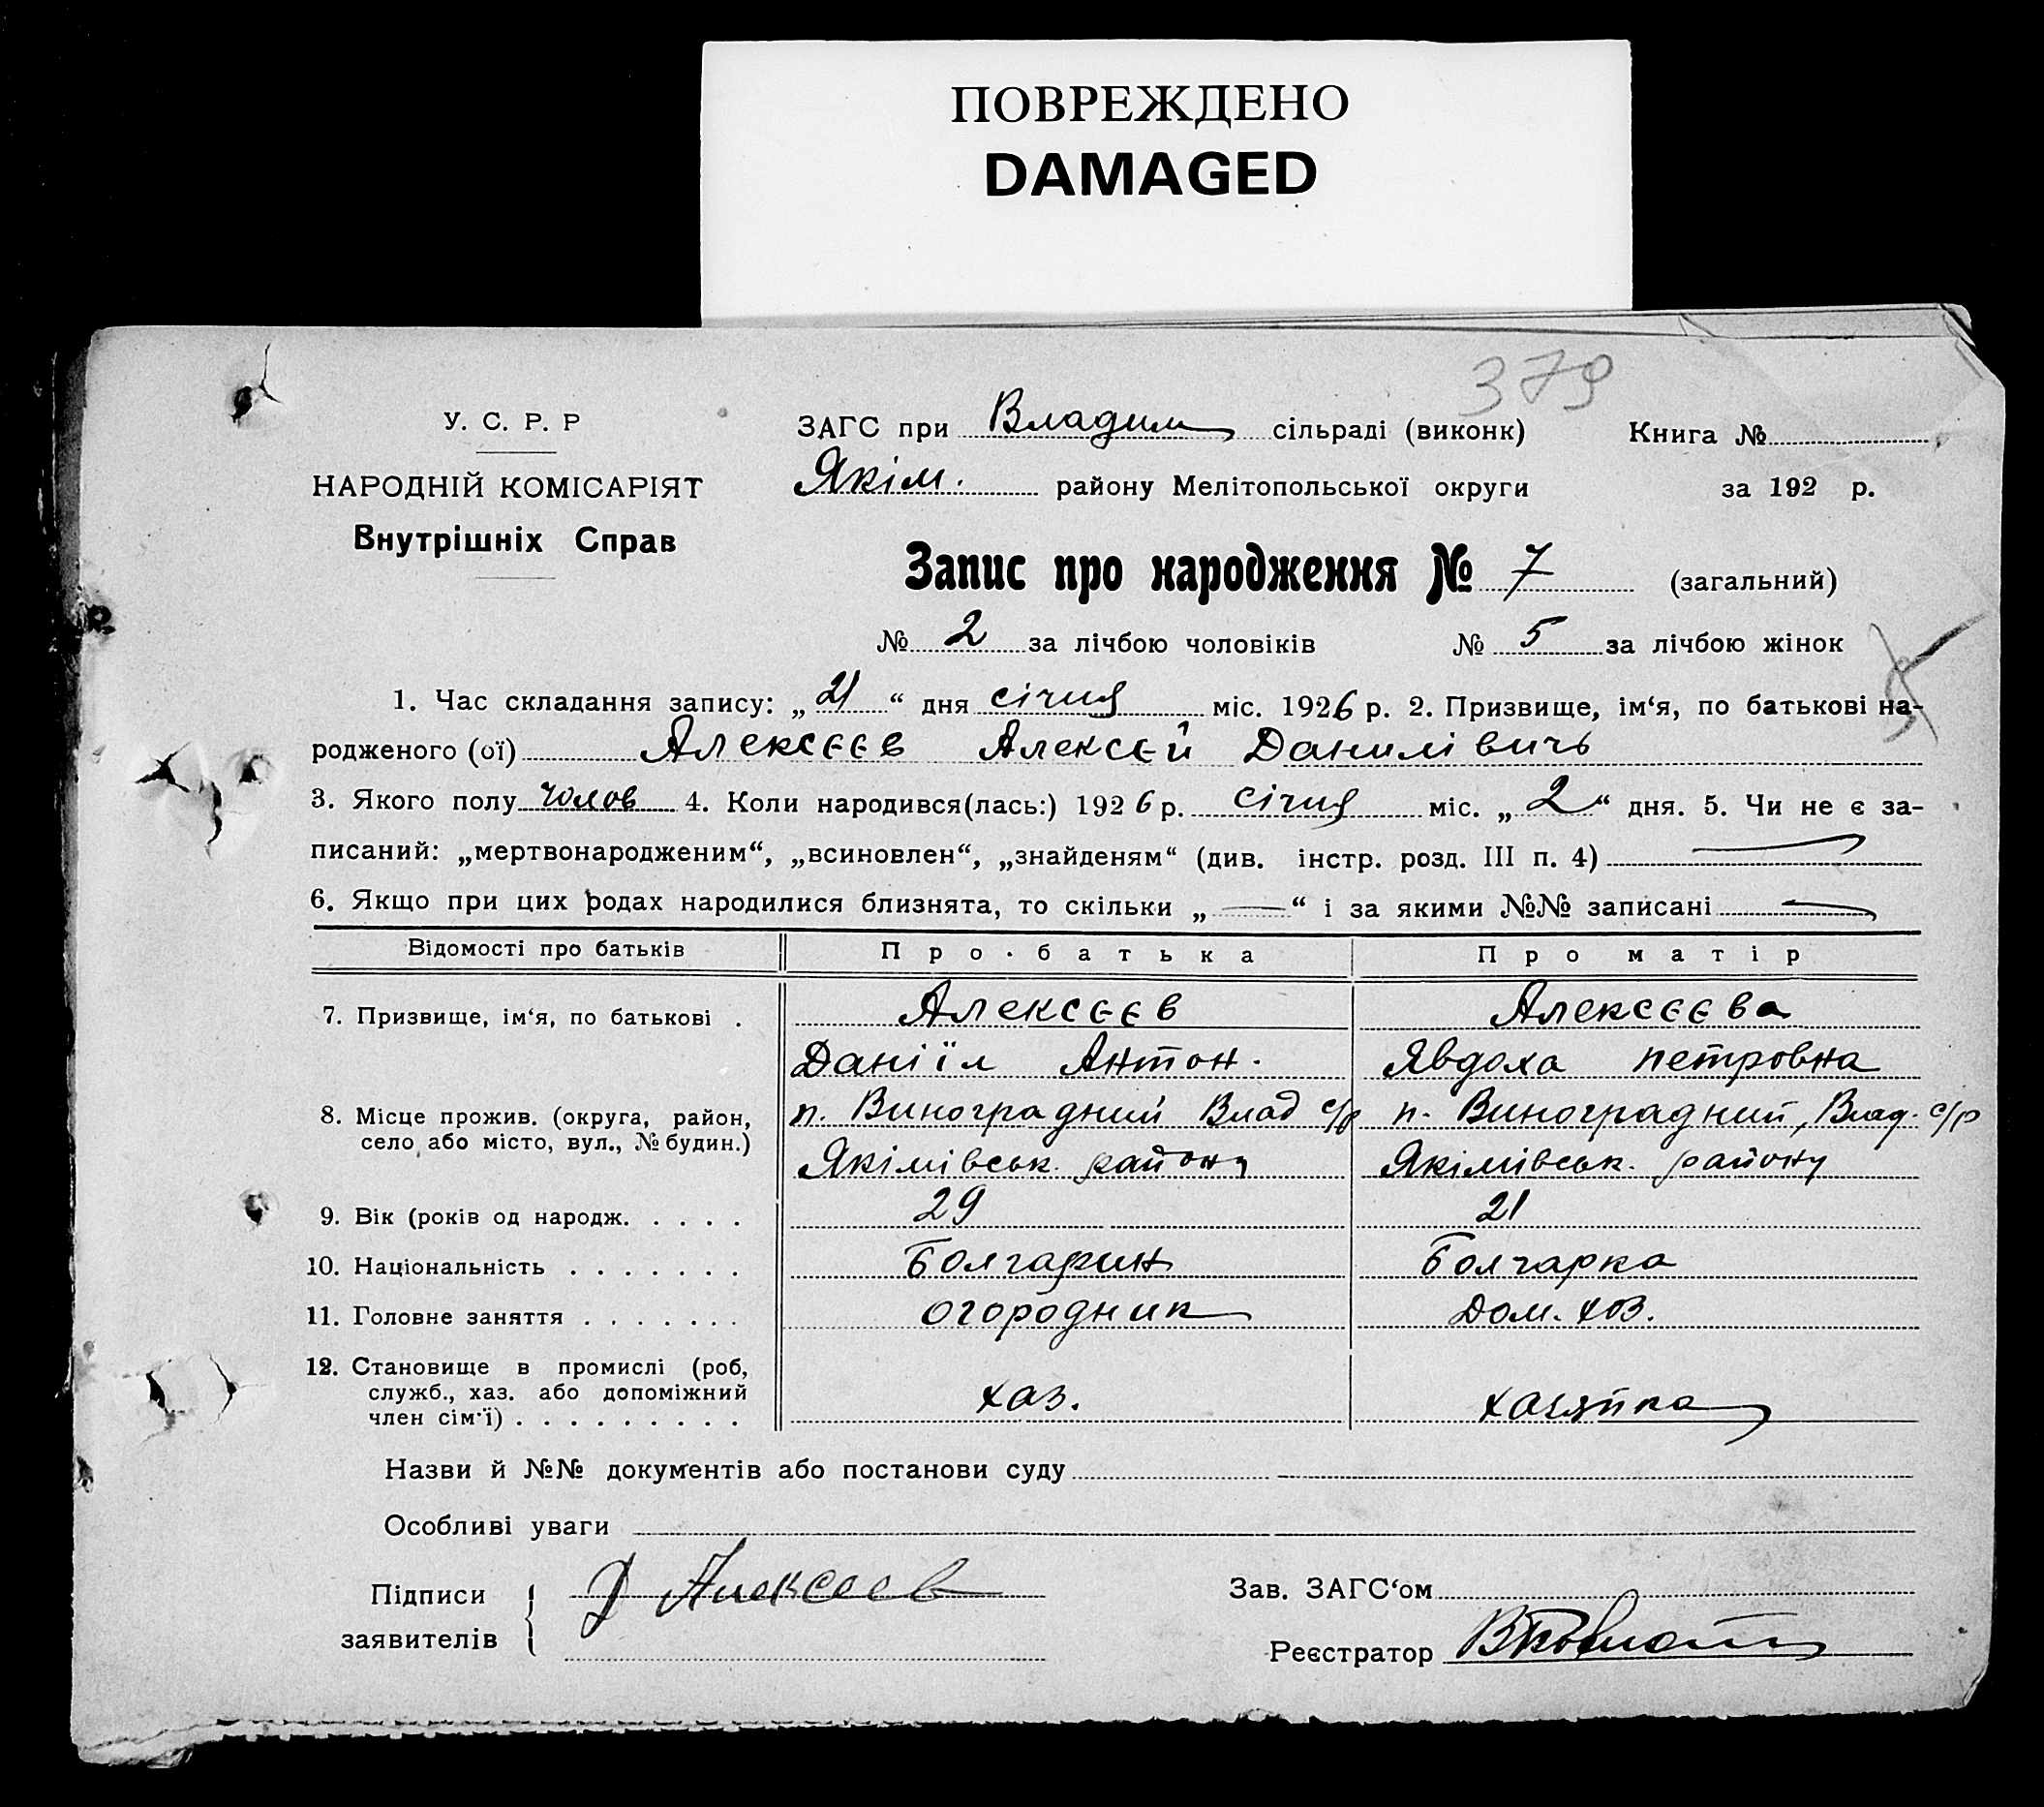 ПОВРЕЖДЕНО
DAMAGED
379
У. С. Р. Р
НАРОДНІЙ КОМІСАРІЯТ
Внутрішніх Справ
ЗАГС при Владим сільраді (виконк) Книга №
Якім. району Мелітопольської округи за 192 р.
Запис про народження № 7 (загальний)
№ 2 за лічбою чоловіків № 5 за лічбою жінок
1. Час складання запису: „21“ дня січня міс. 1926 р. 2. Призвище, ім‘я, по батькові на-
родженого (ої) Алексєєв Алексєй Данилівичь
3. Якого полу чолов 4. Коли народився(лась:) 1926 р. січня міс. „2“ дня. 5. Чи не є за-
писаний: „мертвонародженим“, „всиновлен“, „знайденям“ (див. інстр. розд. III п. 4) —
6. Якщо при цих родах народилися близнята, то скільки „—“ і за якими №№ записані —
Відомості про батьків Про батька Про матір
7. Призвище, ім‘я, по батькові . Алексєєв Алексєєва
Даніїл Антон. Явдоха петровна
8. Місце прожив. (округа, район, п. Виноградний Влад с/р п. Виноградний, Влад. с/р
село або місто, вул., № будин.) Якімівськ. району Якімівськ. району
9. Вік (років од народж. . . . . 29 21
10. Національність . . . . . . . Болгарин Болгарка
11. Головне заняття . . . . . . . огородник Дом. хоз.
12. Становище в промислі (роб,
служб., хаз. або допоміжний хаз. хазяйка
член сім‘ї) . . . . . . . . .
Назви й №№ документів або постанови суду
Особливі уваги
Підписи Д Алексеев Зав. ЗАГС‘ом
заявителів Реєстратор